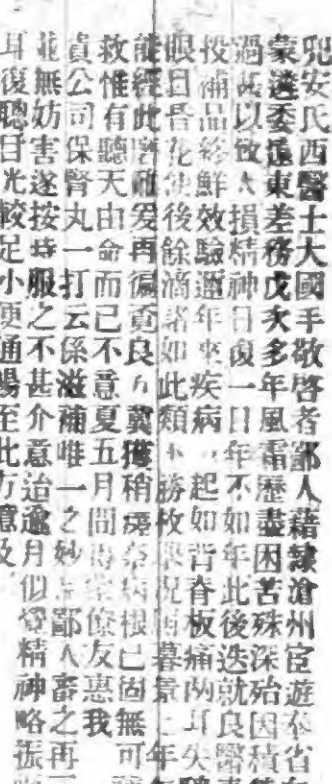 兜安氏西醫士大國手敬啓者鄙人藉隸滄州宦遊奉省
蒙遴委遠東差務戊火多年風霜歷盡困苦殊深殆因積
過甚以致大損精神日復一日年不如年此後迭就良醫
投補品終鮮效驗邇年來疾病起如背脊板痛兩耳失聰
眼目昏花使後餘滴諸如此類不勝枚舉况暮景年
能經此磨難爰再徧查良方冀獲稍痊病根已固無可
救惟有聽天由命而已不意夏五月間僚友惠我
貴公司保腎丸一打云係滋補唯一之妙鄙人畜之再
並無妨害遂按時服之不甚介意迨逾月似覺精神略振
耳復聰目光較足小便通暢至此方憶及